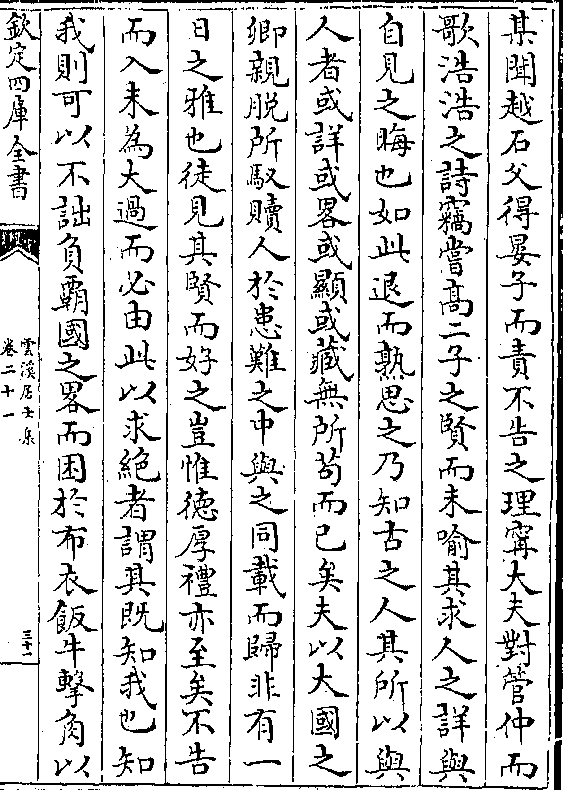 某聞越石父得晏子而責不告之理甯大夫對管仲而
歌浩浩之詩竊嘗髙二子之賢而未喻其求人之詳與
自見之晦也如此退而熟思之乃知古之人其所以與
人者或詳或畧或顯或藏無所茍而已矣夫以大國之
卿親脱所馭贖人於患難之中與之同載而歸非有一
日之雅也徒見其賢而好之豈惟徳厚禮亦至矣不告
而入未為大過而必由此以求絶者謂其既知我也知
我則可以不詘負覇國之畧而困於布衣飯牛擊角以
欽定四庫全書
雲溪居士集
卷二十一
三十一